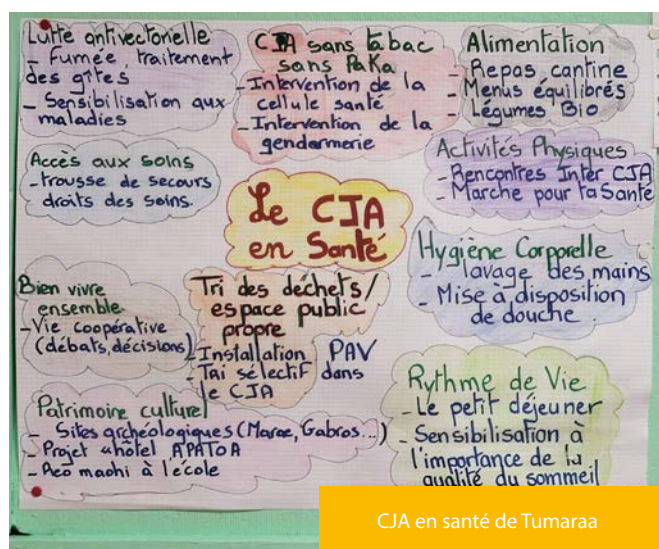 Lutte antivectorielle
- Fumée, traitement
des gîtes
- Sensibilisation aux
maladies
CJA sans tabac
sans PaKa
- Intervention de la
cellule santé
- Intervention de la
gendarmerie
Alimentation
- Repas cantine
- Menus équilibrés
- Légumes Bio
Accès aux soins
- trousse de secours
droits des soins.
Le CJA
en Santé
Activités Physiques
- Rencontres Inter CJA
- Marche pour ta Santé
Hygiène Corporelle
- lavage des mains
- Mise à disposition
de douche.
Bien vivre
ensemble
- Vie coopérative
(débats, décisions)
Tri des déchets/
espace public
propre
- Installation PAV
- Tri sélectif dans
le CJA
Patrimoine culturel
- Sites archéologiques (Marae, Gabros...)
- Projet "hôtel APATOA
- Reo maohi à l'école
Rythme de Vie
- Le petit déjeuner
- Sensibilisation à
l'importance de la
qualité du sommeil
CJA en santé de Tumaraa